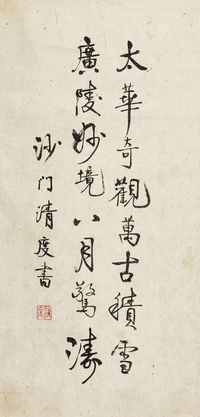 太華奇觀萬古積雪
廣陵妙境八月驚濤
沙门清度書